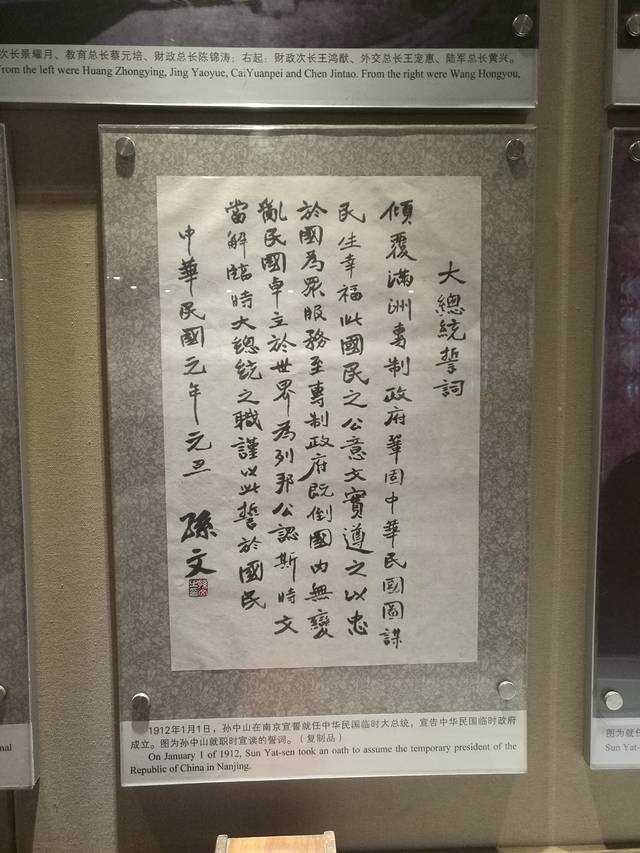 次长景耀月、教育总长蔡元培、财政总长陈锦涛；右起：财政次长王鸿猷、外交总长王宠惠、陆军总长黄兴。
From the left were Huang Zhongying, Jing Yaoyue, CaiYuanpei and Chen Jintao. From the right were Wang Hongyou,
大總統誓詞
傾覆滿洲專制政府鞏固中華民國圖謀
民生幸福此國民之公意文實遵之以忠
於國為眾服務至專制政府既倒國內無變
亂民國卓立於世界為列邦公認斯時文
當解臨時大總統之職謹以此誓於國民
中華民國元年元旦
孫文
1912年1月1日，孙中山在南京宣誓就任中华民国临时大总统，宣告中华民国临时政府
成立。图为孙中山就职时宣读的誓词。（复制品）
On January 1 of 1912, Sun Yat-sen took an oath to assume the temporary president of the
Republic of China in Nanjing.
nal
图为就任
Sun Ya